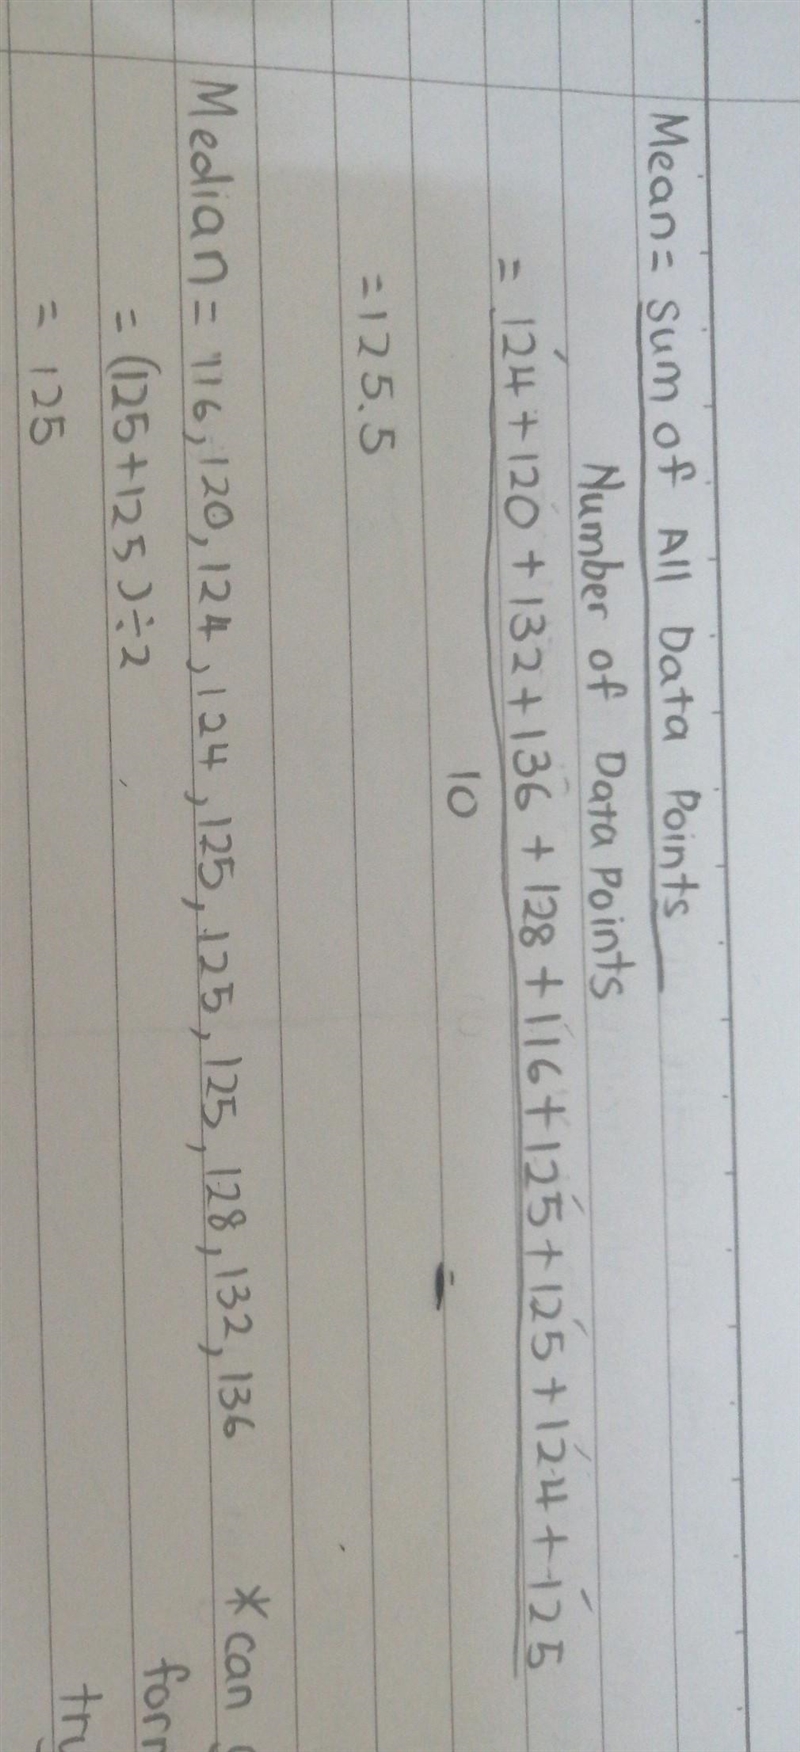 Mean = Sum of All Data Points
Number of Data Points
= 124 + 120 + 132 + 136 + 128 + 116 + 125 + 125 + 124 + 125
10
= 125.5
Median = 116, 120, 124, 124, 125, 125, 125, 128, 132, 136 * can
= (125 + 125) ÷ 2
= 125